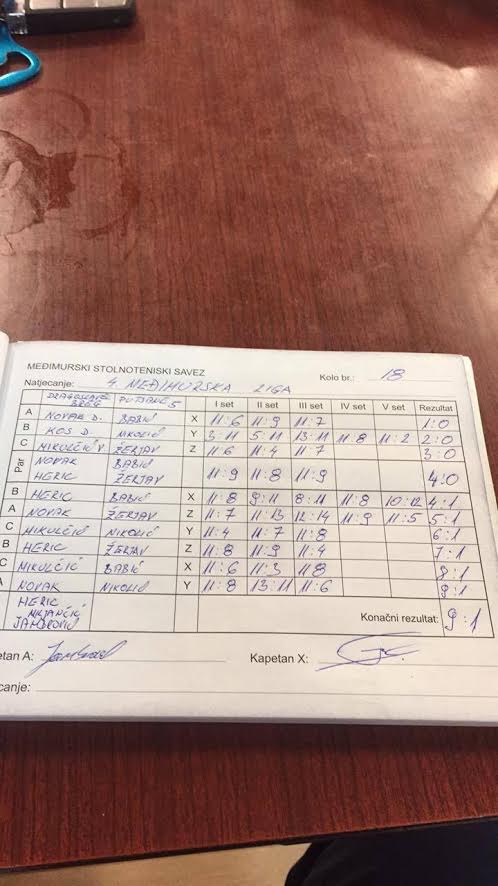 MEĐIMURSKI STOLNOTENISKI SAVEZ
Natjecanje: 4. MEĐIMURSKA LIGA Kolo br.: 18
DRAGOSLAVEC BREG I set II set III set IV set V set Rezultat
A NOVAK D. BABIĆ X 11:6 11:9 11:7 1:0
B KOS D. NIKOLIĆ Y 3:11 5:11 13:11 11:8 11:2 2:0
C MIKULČIĆ V. ŽERJAV Z 11:6 11:4 11:7 3:0
Par NOVAK BABIĆ
HERIC ŽERJAV 11:9 11:8 11:9 4:0
B HERIC BABIĆ X 11:8 9:11 8:11 11:8 10:12 4:1
A NOVAK ŽERJAV Z 11:7 11:13 12:14 11:9 11:5 5:1
C MIKULČIĆ NIKOLIĆ Y 11:4 11:7 11:8 6:1
B HERIC ŽERJAV Z 11:8 11:9 11:4 7:1
C MIKULČIĆ BABIĆ X 11:6 11:3 11:8 8:1
A NOVAK NIKOLIĆ Y 11:8 13:11 11:6 9:1
HERIC
JAMBROVIĆ Konačni rezultat: 9:1
etan A: Kapetan X:
ecanje: